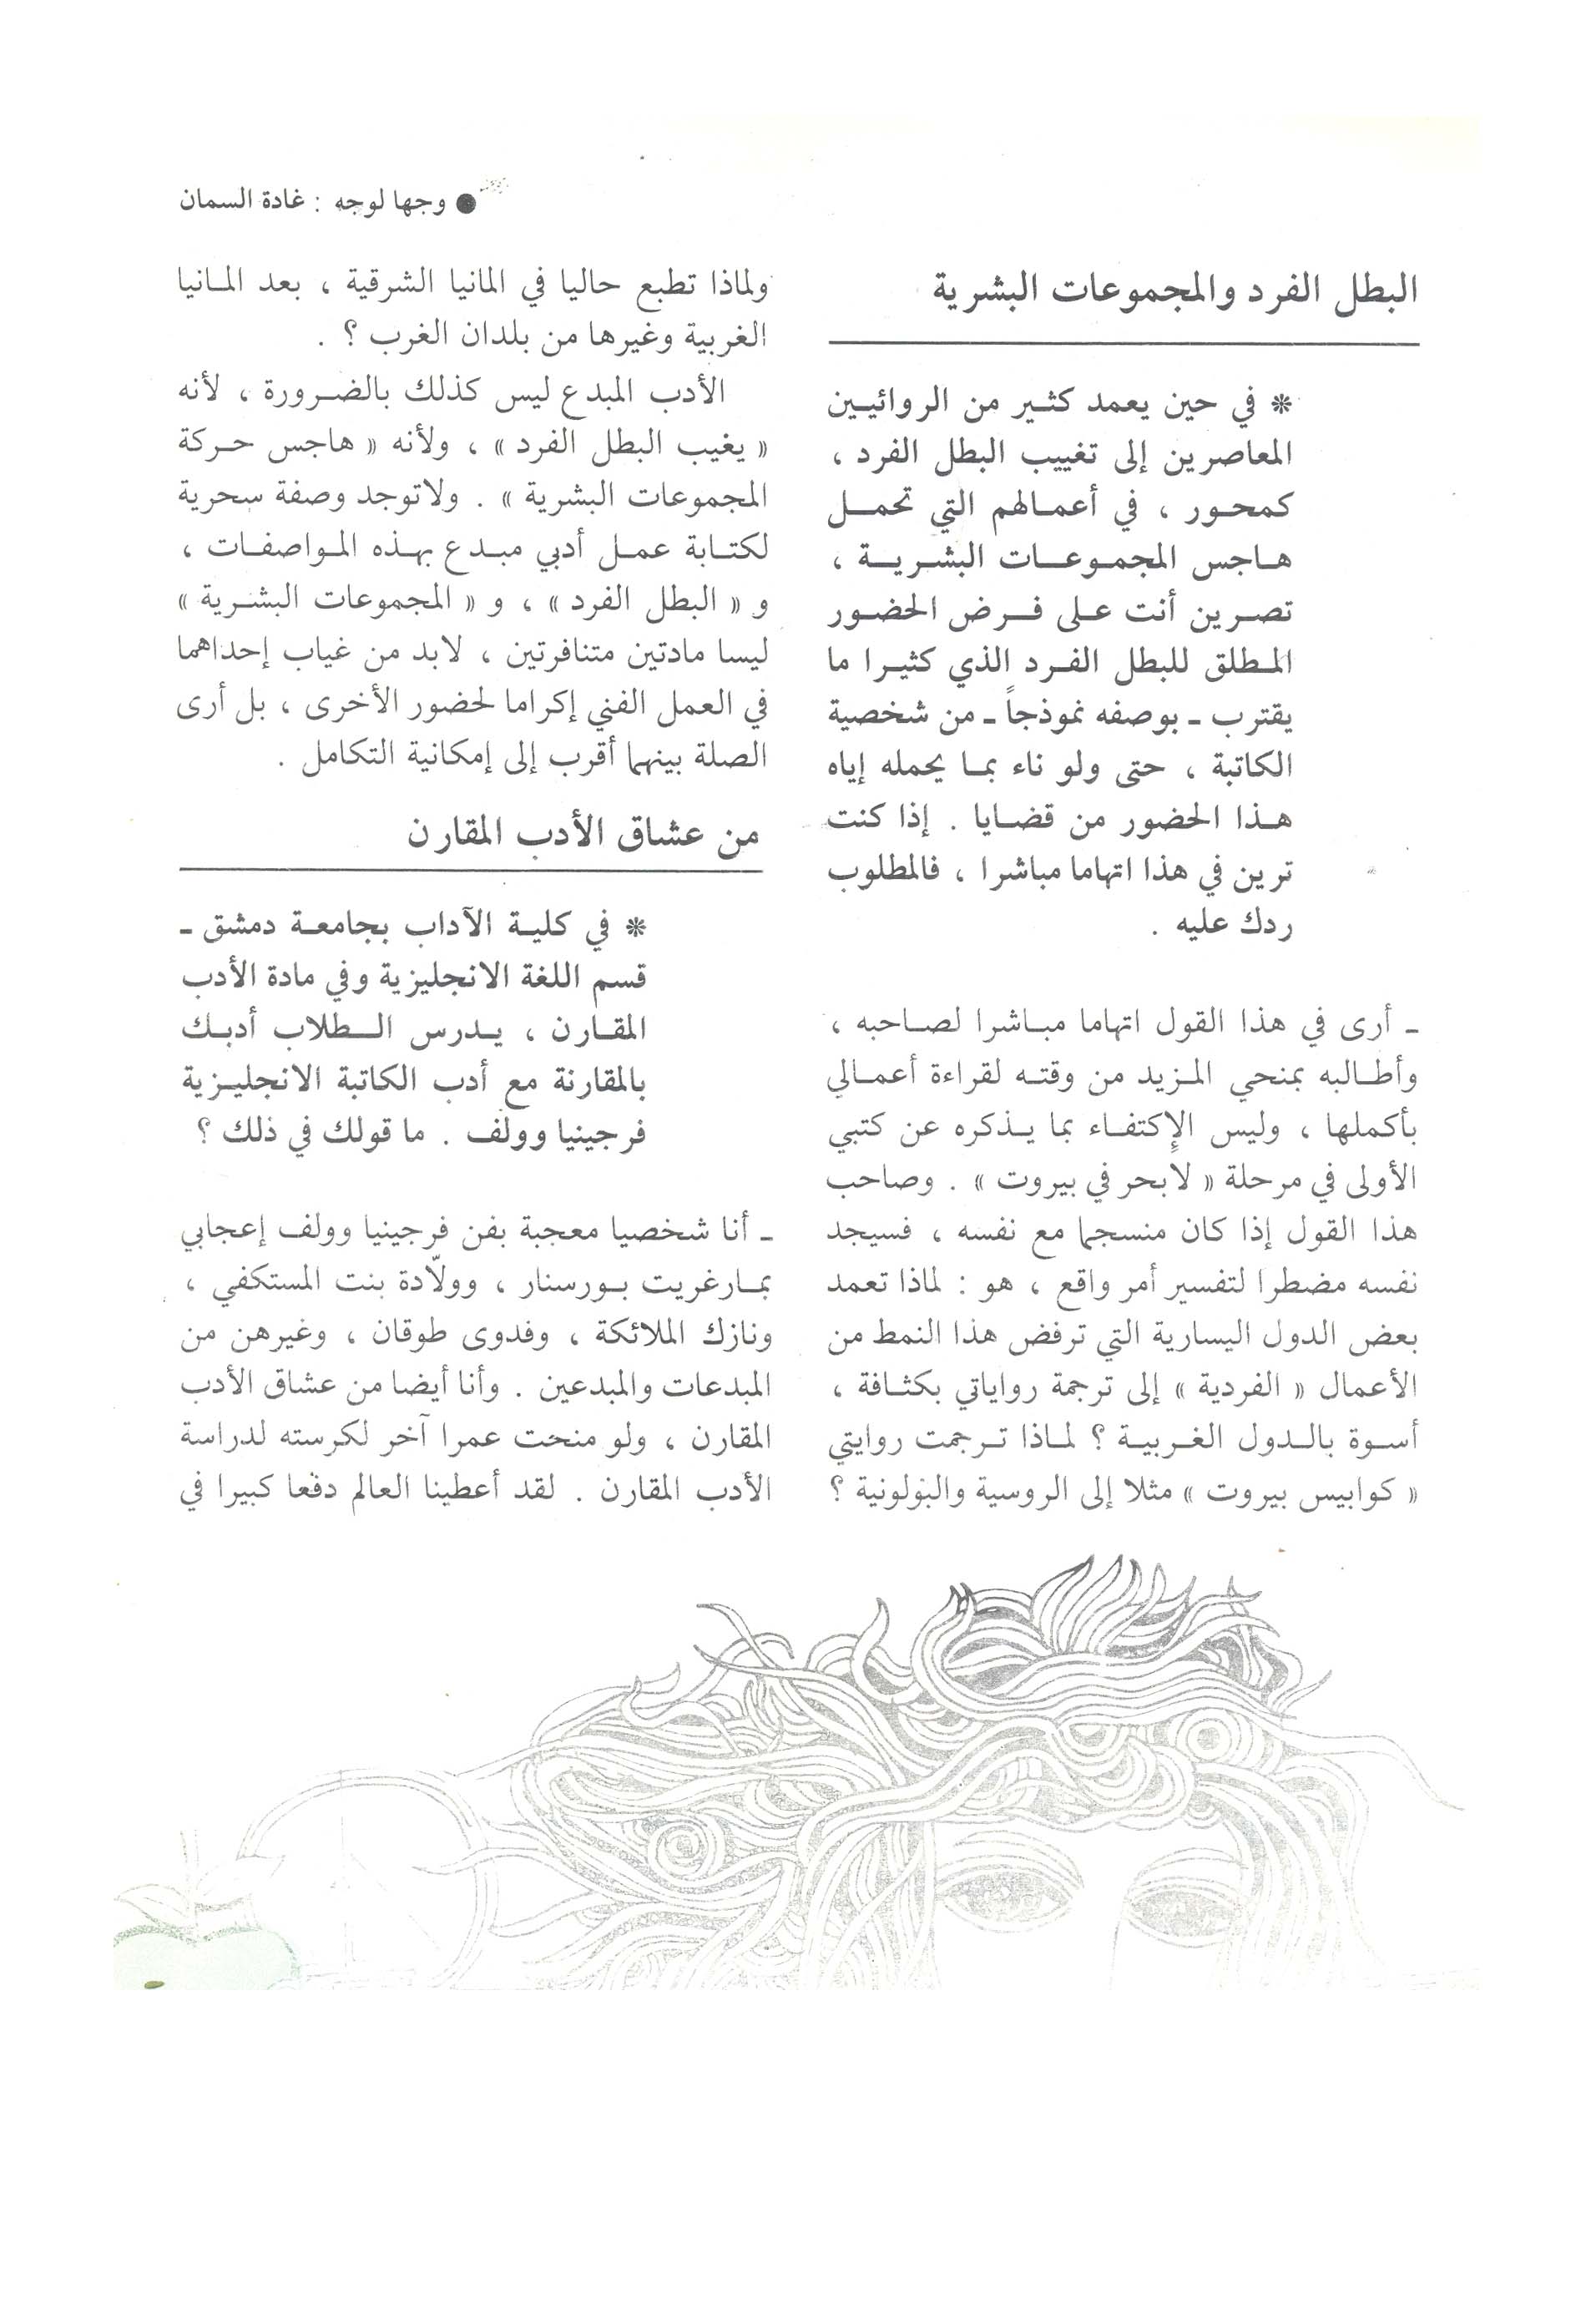 ● وجها لوجه : غادة السمان
البطل الفرد والمجموعات البشرية
* في حين يعمد كثير من الروائيين
المعاصرين إلى تغييب البطل الفرد ،
كمحور ، في أعمالهم التي تحمل
هاجس المجموعات البشرية ،
تصرين أنت على فرض الحضور
المطلق للبطل الفرد الذي كثيرا ما
يقترب ـ بوصفه نموذجاً ـ من شخصية
الكاتبة ، حتى ولو ناء بما يحمله إياه
هذا الحضور من قضايا . إذا كنت
ترين في هذا اتهاما مباشرا ، فالمطلوب
ردك عليه .
ـ أرى في هذا القول اتهاما مباشرا لصاحبه ،
وأطالبه بمنحي المزيد من وقته لقراءة أعمالي
بأكملها ، وليس الإكتفاء بما يذكره عن كتبي
الأولى في مرحلة « لابحر في بيروت » . وصاحب
هذا القول إذا كان منسجما مع نفسه ، فسيجد
نفسه مضطرا لتفسير أمر واقع ، هو : لماذا تعمد
بعض الدول اليسارية التي ترفض هذا النمط من
الأعمال « الفردية » إلى ترجمة رواياتي بكثافة ،
أسوة بالدول الغربية ؟ لماذا ترجمت روايتي
« كوابيس بيروت » مثلا إلى الروسية والبولونية ؟
ولماذا تطبع حاليا في المانيا الشرقية ، بعد المانيا
الغربية وغيرها من بلدان الغرب ؟ .
الأدب المبدع ليس كذلك بالضرورة ، لأنه
« يغيب البطل الفرد » ، ولأنه « هاجس حركة
المجموعات البشرية » . ولاتوجد وصفة سحرية
لكتابة عمل أدبي مبدع بهذه المواصفات ،
و « البطل الفرد » ، و « المجموعات البشرية »
ليسا مادتين متنافرتين ، لابد من غياب إحداهما
في العمل الفني إكراما لحضور الأخرى ، بل أرى
الصلة بينهما أقرب إلى إمكانية التكامل .
من عشاق الأدب المقارن
* في كلية الآداب بجامعة دمشق ـ
قسم اللغة الانجليزية وفي مادة الأدب
المقارن ، يدرس الطلاب أدبك
بالمقارنة مع أدب الكاتبة الانجليزية
فرجينيا وولف . ما قولك في ذلك ؟
ـ أنا شخصيا معجبة بفن فرجينيا وولف إعجابي
بمارغريت بورسنار ، وولّادة بنت المستكفي ،
ونازك الملائكة ، وفدوى طوقان ، وغيرهن من
المبدعات والمبدعين . وأنا أيضا من عشاق الأدب
المقارن ، ولو منحت عمرا آخر لكرسته لدراسة
الأدب المقارن . لقد أعطينا العالم دفعا كبيرا في